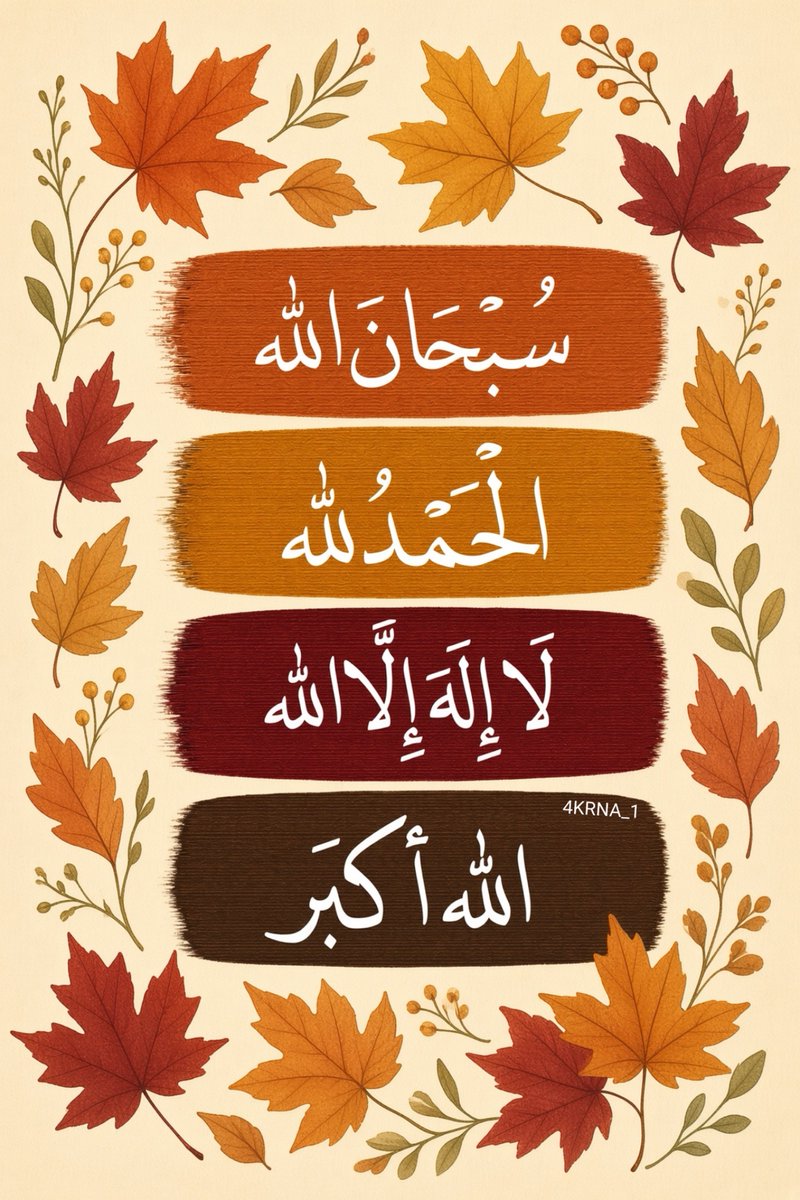 سُبْحَانَ الله
الْحَمْدُ لله
لَا إِلَهَ إِلَّا الله
4KRNA_1
الله أكبَر